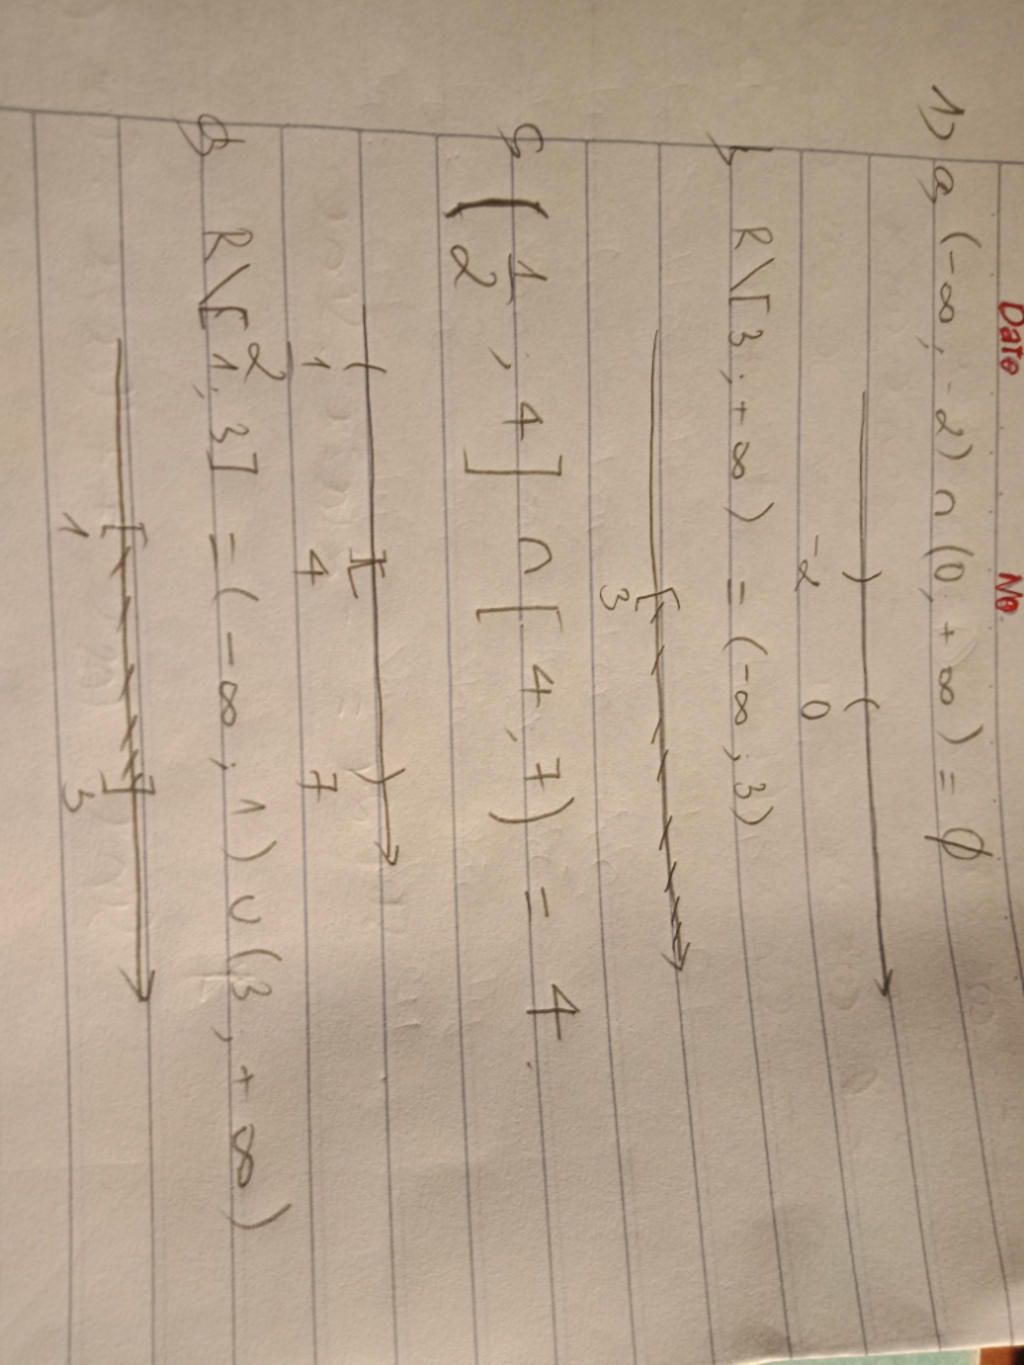 Date No.
1) a, (-∞; -2) ∩ (0; +∞) = ∅
-2 0
b, R\[3; +∞) = (-∞; 3)
3
c, (1/2, 4] ∩ [4, 7) = 4
1/2 4 7
d, R\[1; 3] = (-∞; 1) ∪ (3; +∞)
1 3